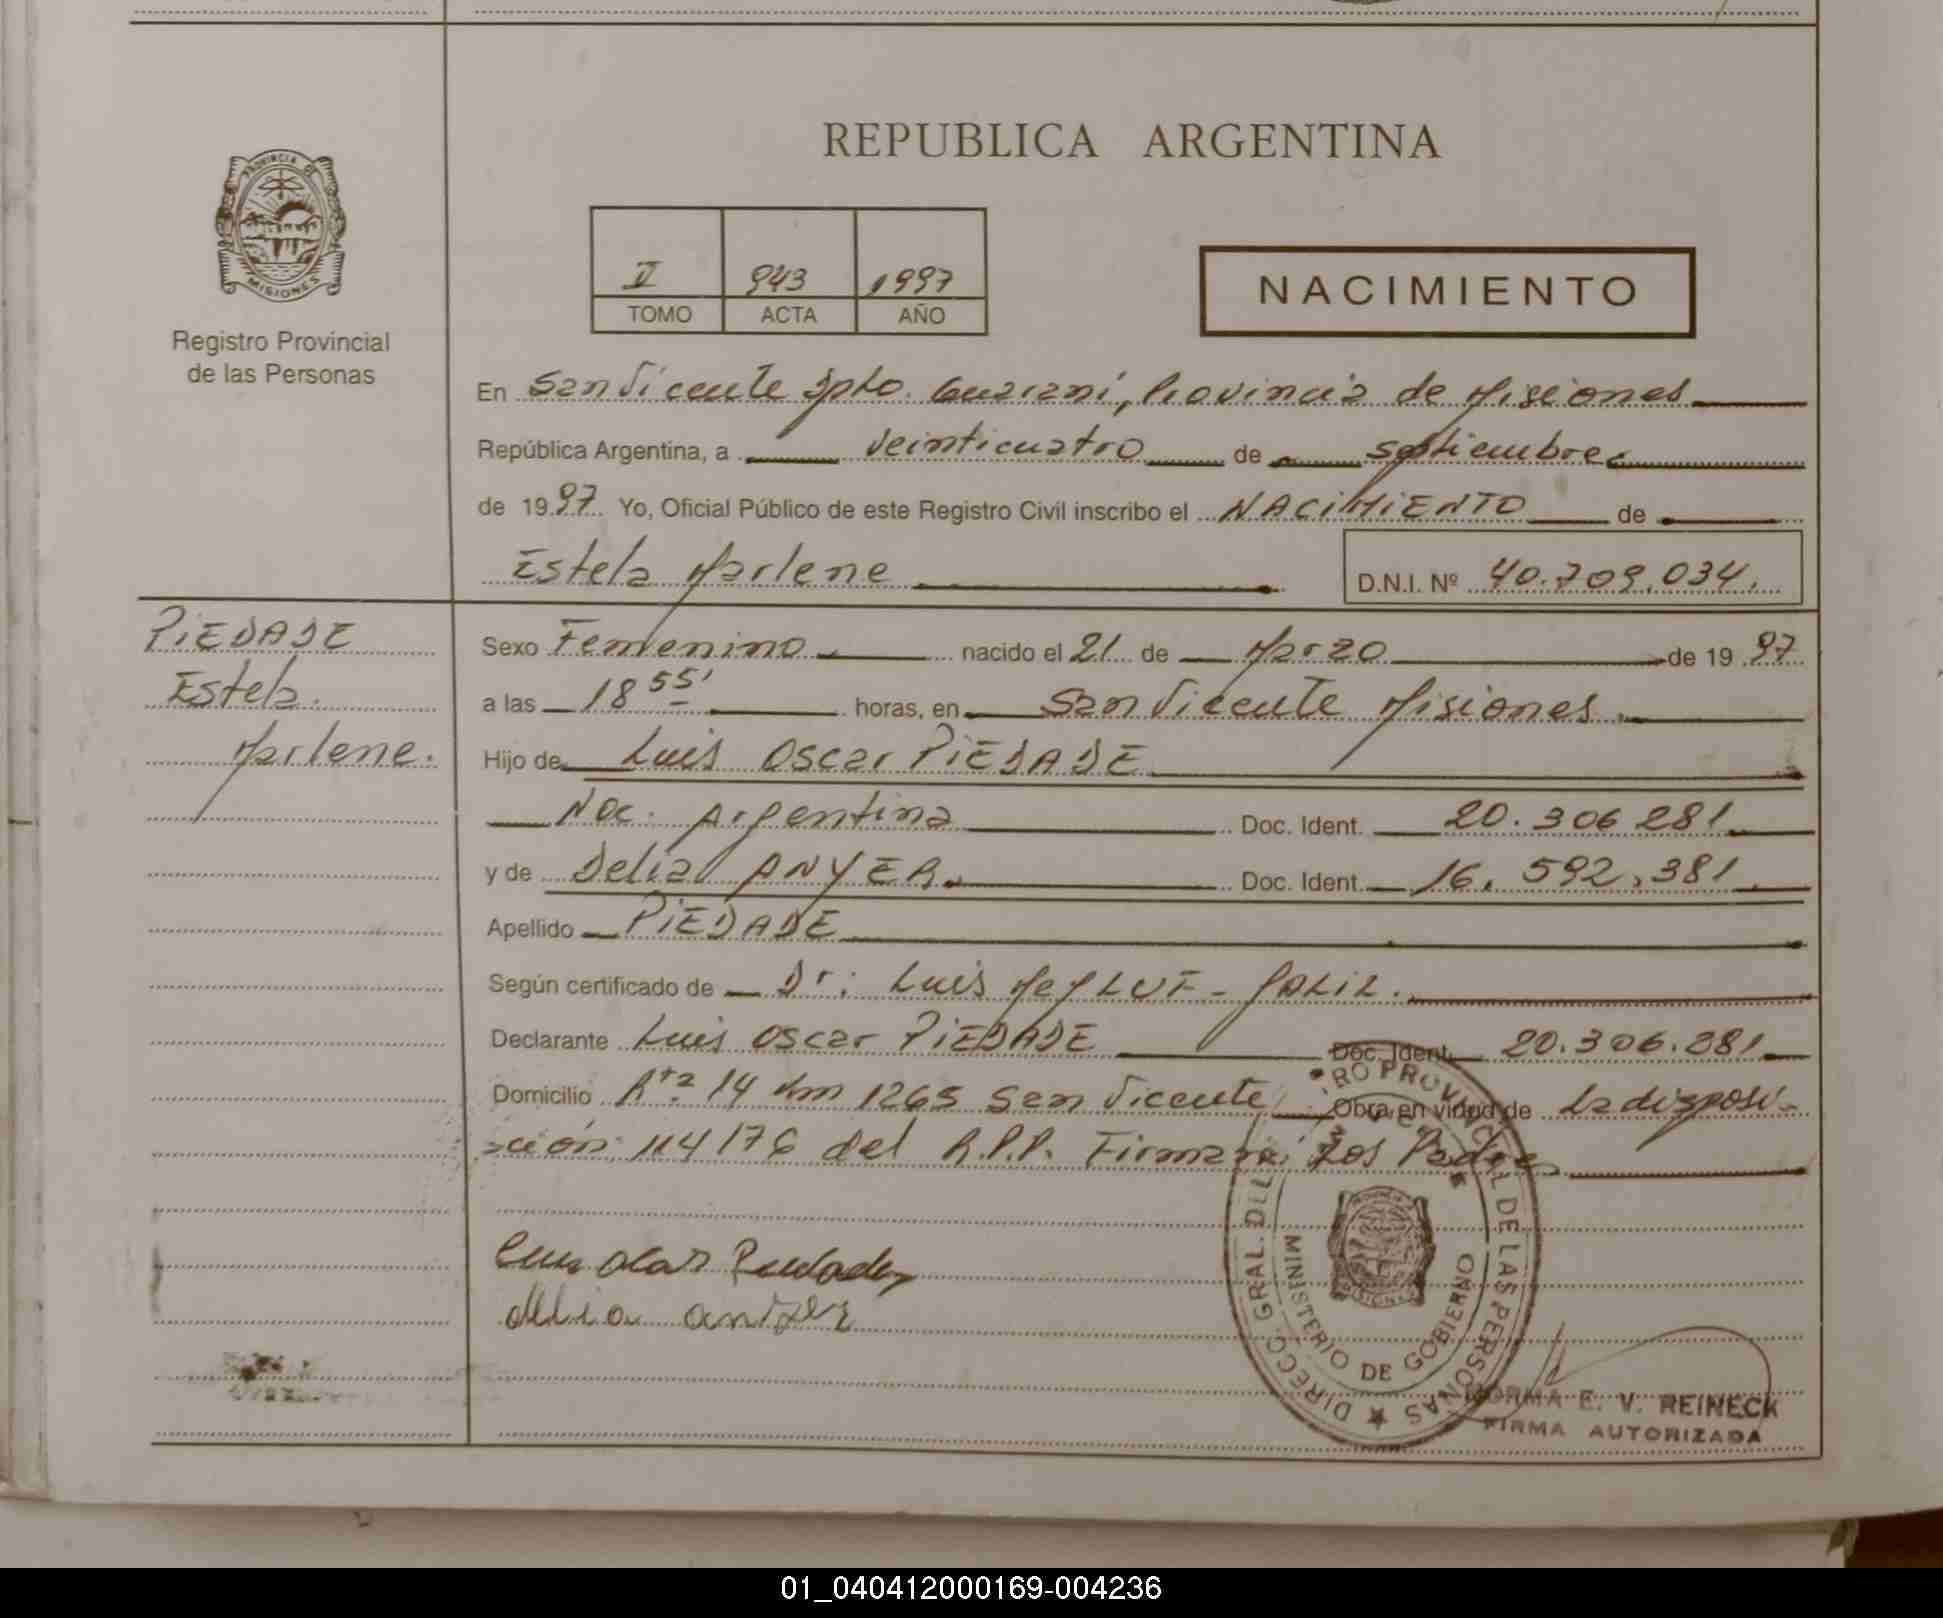 REPUBLICA ARGENTINA
PROVINCIA DE MISIONES
Registro Provincial
de las Personas
II 943 1997
TOMO ACTA AÑO
NACIMIENTO
En San Vicente Dpto. Guarani, Provincia de Misiones
República Argentina, a veinticuatro de septiembre
de 1997 Yo, Oficial Público de este Registro Civil inscribo el NACIMIENTO de
Estela Marlene D.N.I. Nº 40.709.034.
PIEDADE
Estela
Marlene.
Sexo Femenino nacido el 21 de Marzo de 1997
a las 18 55' horas, en San Vicente Misiones
Hijo de Luis Oscar PIEDADE
Nac. Argentina Doc. Ident. 20.306.281
y de Delia ANYER. Doc. Ident. 16.592.381
Apellido PIEDADE
Según certificado de Dr: Luis JALIL.
Declarante Luis Oscar PIEDADE Doc. Ident. 20.306.281
Domicilio Rta. 14 Km 1265 San Vicente Obra en virtud de la disposi-
ción 114/76 del R.P.P. Firmará: Los Padres
delia
DIRECC. GRAL. DEL REGISTRO PROVINCIAL DE LAS PERSONAS
MINISTERIO DE GOBIERNO
NORMA E. V. REINECK
FIRMA AUTORIZADA
01_040412000169-004236